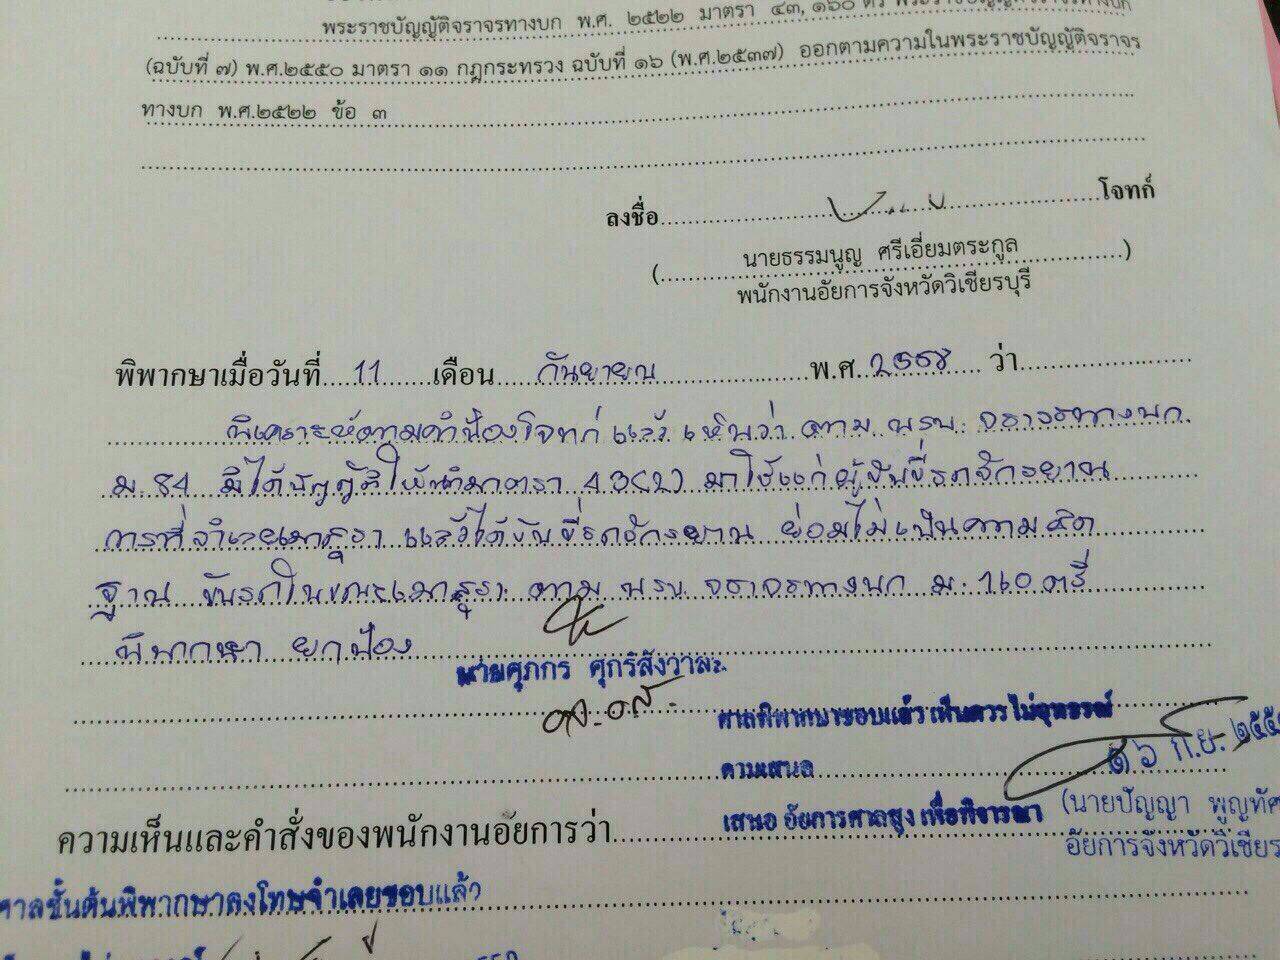 พระราชบัญญัติจราจรทางบก พ.ศ. ๒๕๒๒ มาตรา ๔๓, ๑๖๐ ตรี พระราชบัญญัติจราจรทางบก
(ฉบับที่ ๗) พ.ศ.๒๕๕๐ มาตรา ๑๑ กฎกระทรวง ฉบับที่ ๑๖ (พ.ศ.๒๕๓๗) ออกตามความในพระราชบัญญัติจราจร
ทางบก พ.ศ.๒๕๒๒ ข้อ ๓
ลงชื่อ โจทก์
(นายธรรมนูญ ศรีเอี่ยมตระกูล)
พนักงานอัยการจังหวัดวิเชียรบุรี
พิพากษาเมื่อวันที่ 11 เดือน กันยายน พ.ศ. 2558 ว่า
พิเคราะห์ตามคำฟ้องโจทก์ แล้ว เห็นว่า ตาม พรบ. จราจรทางบก
ม. 84 มิได้บัญญัติให้นำมาตรา 43(2) มาใช้แก่ผู้ขับขี่รถจักรยาน
การที่จำเลยเมาสุรา แล้วได้ขับขี่รถจักรยาน ย่อมไม่เป็นความผิด
ฐาน ขับรถในขณะเมาสุรา ตาม พรบ. จราจรทางบก ม. 160 ตรี
พิพากษา ยกฟ้อง
นายศุภกร ศุกรีสังวาละ
ศาลพิพากษาชอบแล้ว เห็นควร ไม่อุทธรณ์
ตามเสนอ
๑๖ ก.ย.
เสนอ อัยการศาลสูง เพื่อพิจารณา
(นายปัญญา พูญทัศ
ความเห็นและคำสั่งของพนักงานอัยการว่า
อัยการจังหวัดวิเชียร
ศาลชั้นต้นพิพากษาลงโทษจำเลยชอบแล้ว